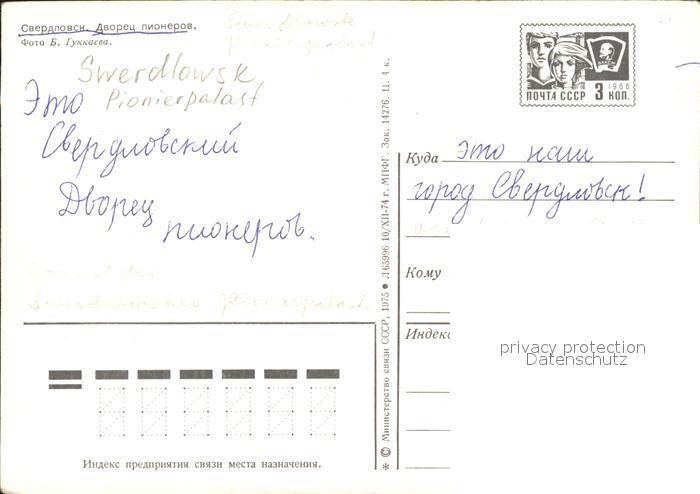 Свердловск. Дворец пионеров.
Фото Б. Гуккаева.
Swerdlowsk
Pionierpalast
Swerdlowsk
Pionierpalast
Это
Свердловский
Дворец
пионеров.
Das ist der
Swerdlowsker Pionierpalast.
Индекс предприятия связи места назначения.
* © Министерство связи СССР, 1975 ● Л 65996 10/XII-74 г. МПФГ. Зак. 14276. Ц. 4 к.
ПОЧТА СССР 3 КОП. 1966
Куда это наш
город Свердловск!
Кому
Индекс
privacy protection
Datenschutz